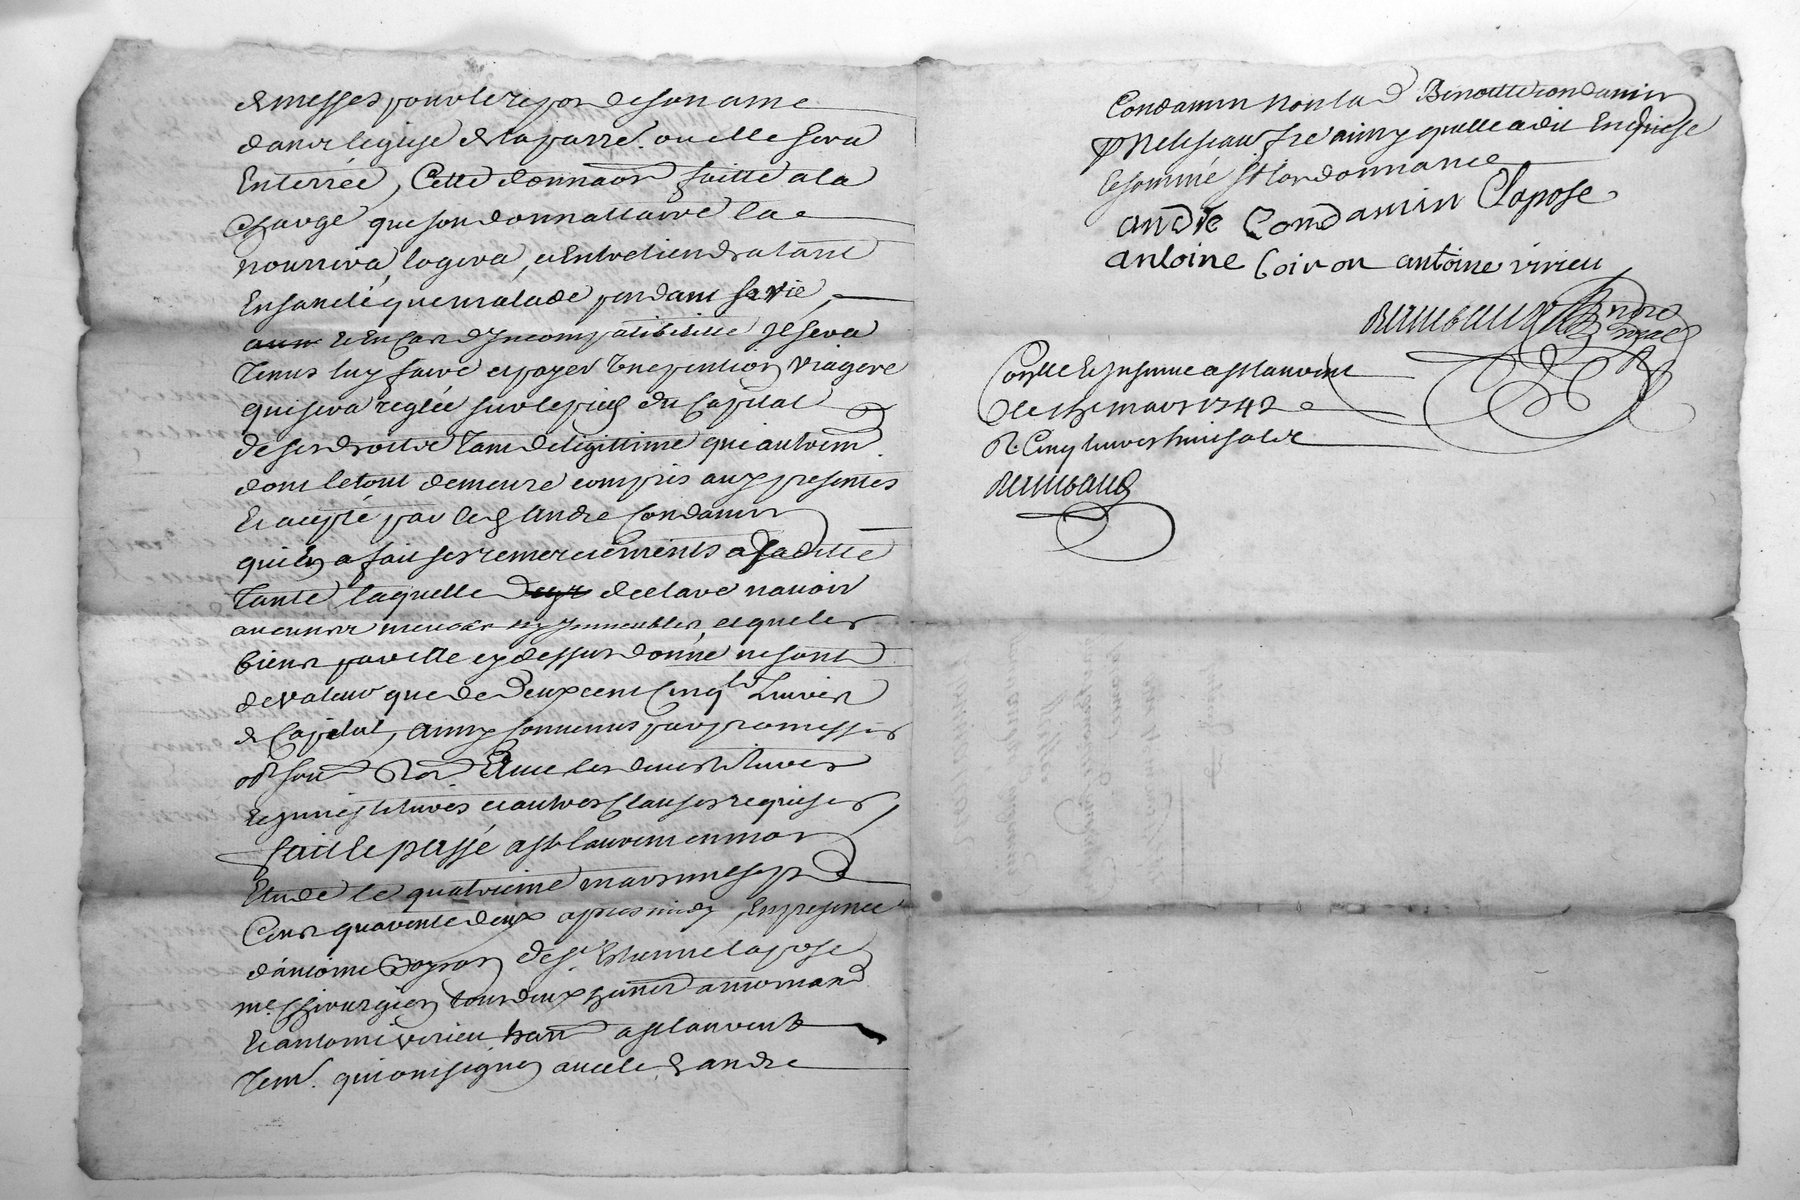 de messes pour le repos de son ame
dans leglise de laparre. ou elle sera
Enterrée, Cette donnaon faitte a la
charge que son donnattaire la
nourrira, logera, et Entretiendra tant
En santé que malade pendant sa vie,
et En Cas d'Incompatibilitté Il sera
Tenus luy faire et payer une pention viagere
qui sera reglée sur le pied du Capital
de ses droits Tant de legittime que autrem
dont le tout demeure compris aux presentes
Et accepté par led André Condamin
qui En a fait ses remerciements a sa ditte
Tante laquelle declare n'avoir
aucuns meubles ny Immeubles, et que les
biens par elle cy dessus donné ne sont
de valeur que de Deux cent Cinqte Livres
de Capital, ainsy Convenus par promesses
obl soub Ron Et
et autres Clauses requises,
fait et passé a St Laurent en mon
Etude le quatrieme mars mil sept
Cents quarente deux apres midy, En presence
d'antoine Coyron de Sr Estienne Lapose
me. Chirurgien tous deux hants a mornand
Et antoine virieu hant a St Laurent
Tem. qui ont signé avec led andré
Condamin non lad Benoitte Condamin
ainsy quelle a dit Enquise
Et sommé St lordonnance
andré Condamin Clapose
antoine Coiron antoine virieu
Raimbaud Nore
Royal
Conlle & Insinué a St Laurent
le mars 1742
R. Cinq livres huit sols
Raimbaud